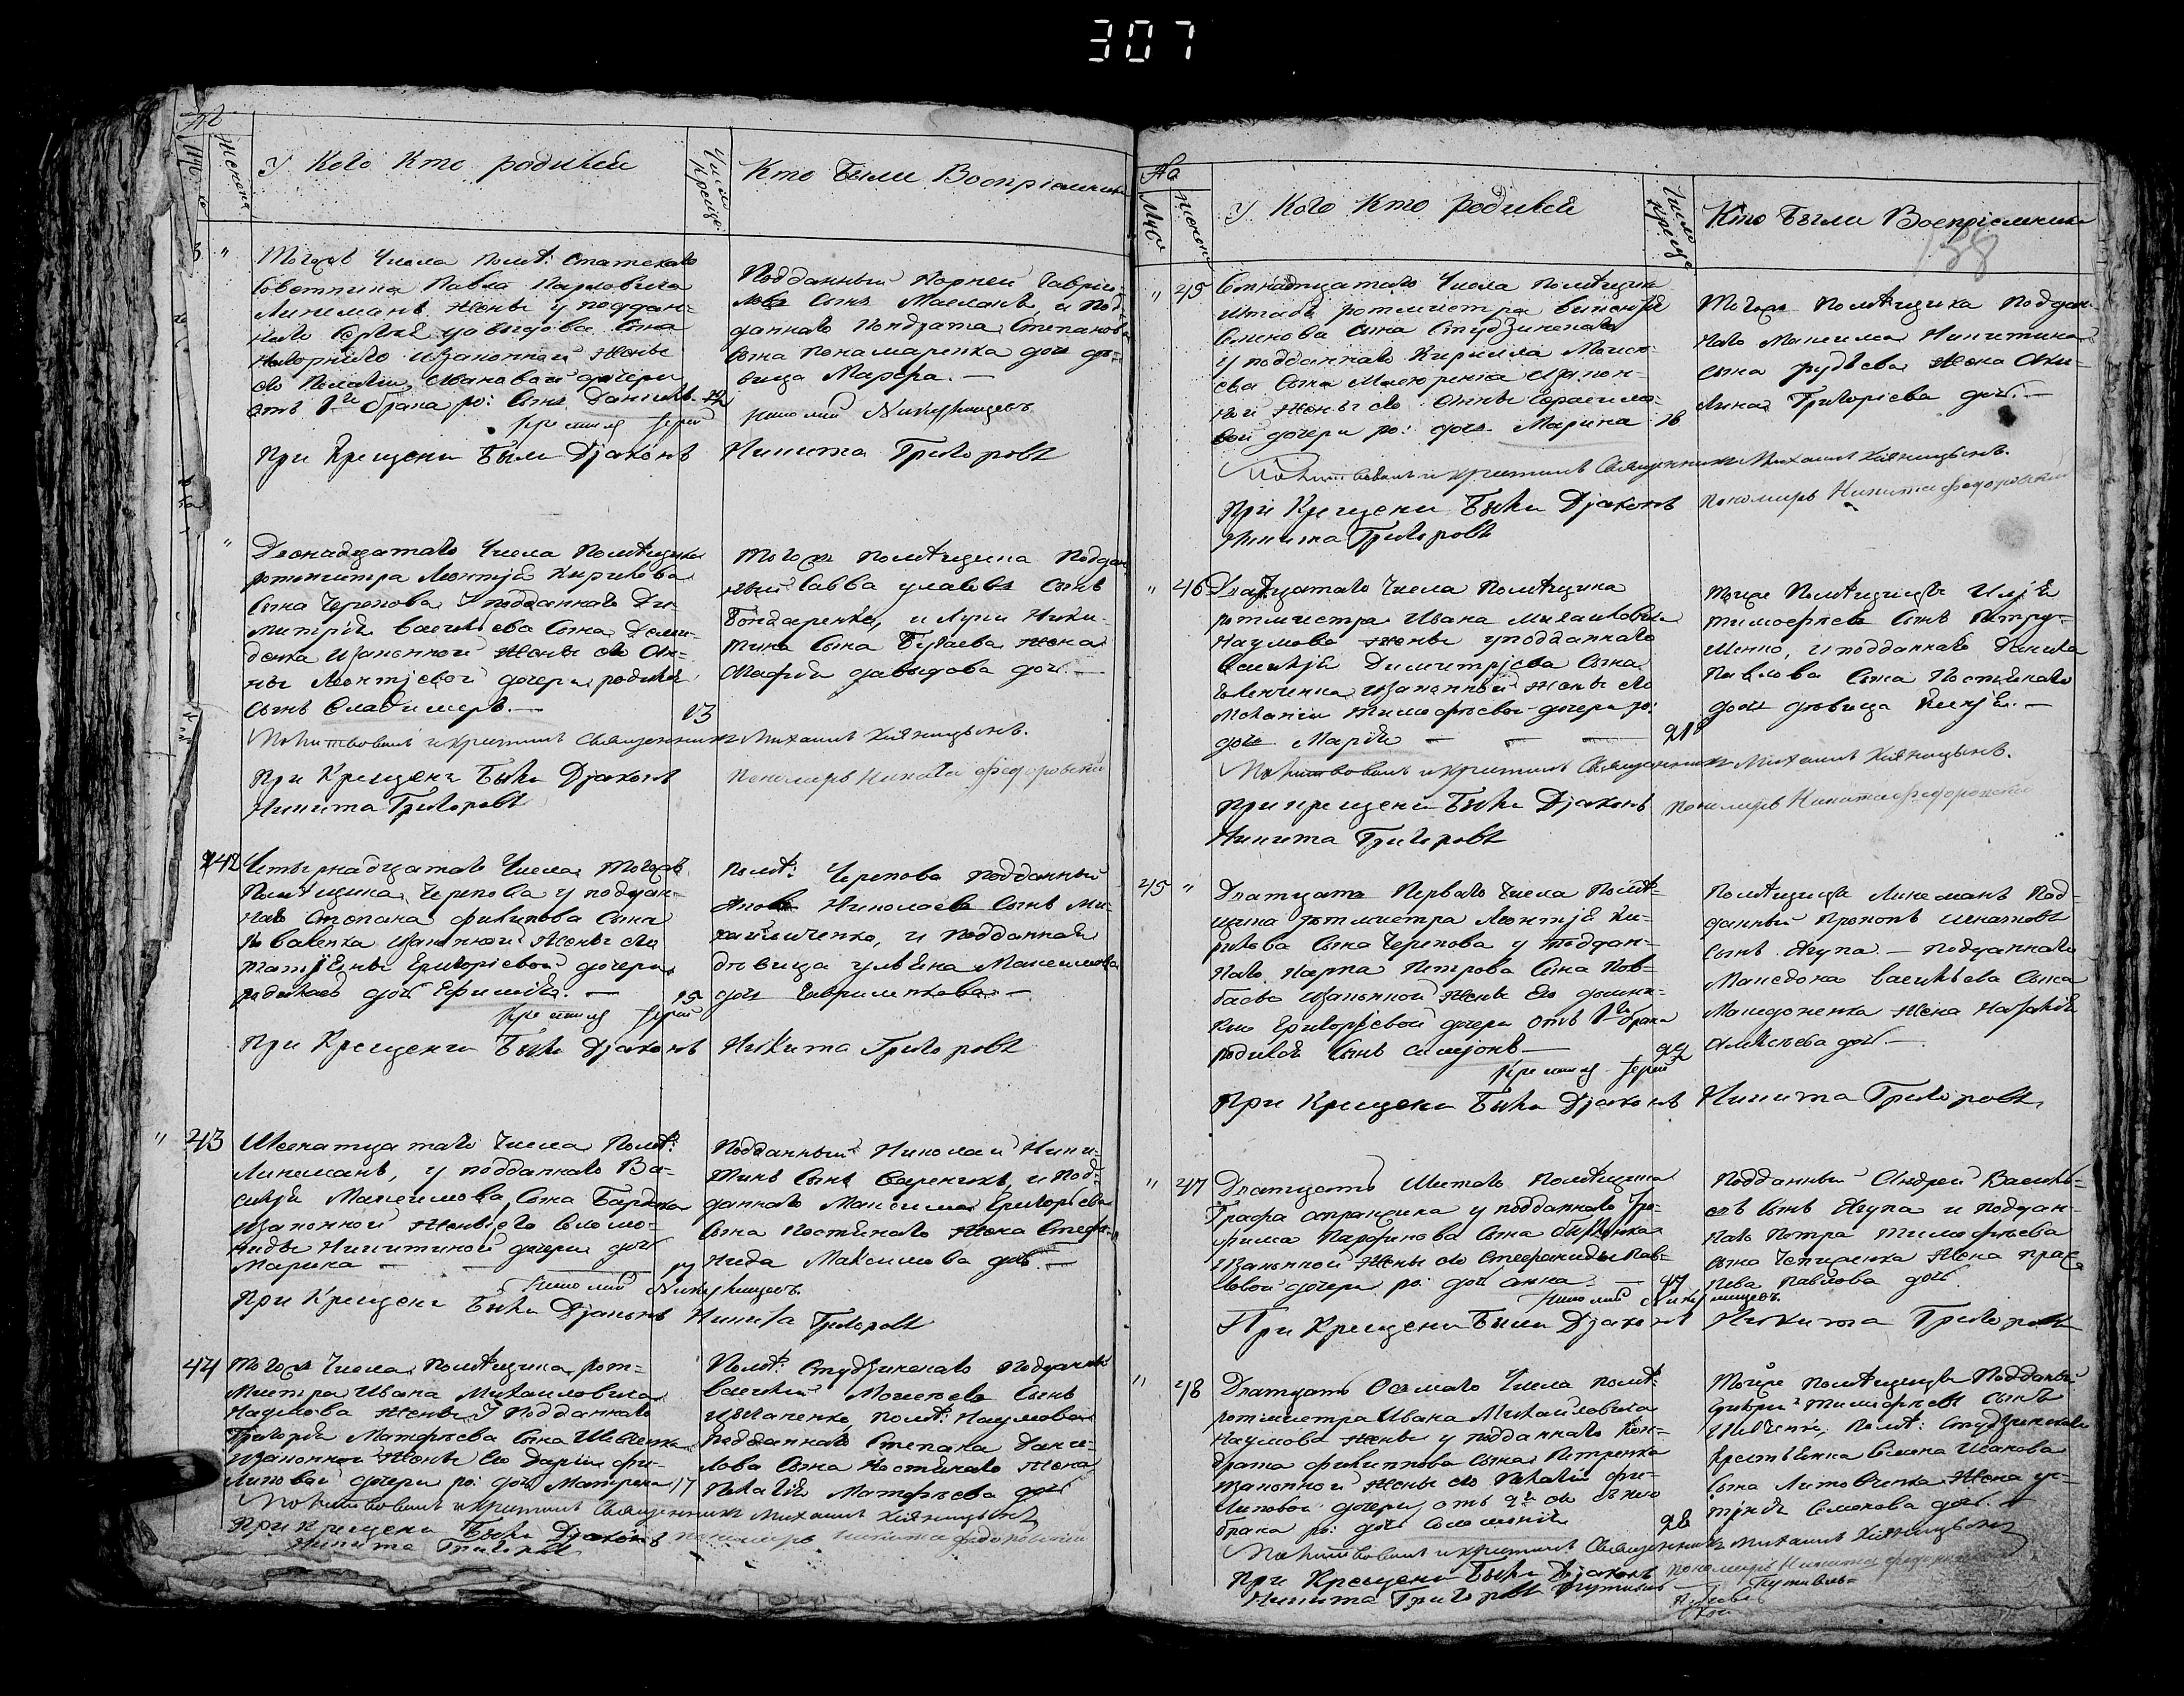 307
У Кого Кто родился
Число Креще:
Кто были Восприемники
Женска
3 "
Тогожъ Числа помѣ: Статскаго
Советника Павла Павловича
Линеманъ жены у поддан-
наго Сергѣя Давыдова Сына
изаконной жены
его Пелагіи Ивановой дочери
отъ 1го брака ро: Сынъ Данiилъ
Подданный Корней Гаврiи-
ловъ Сынъ Масланъ, и Под-
даннаго Кондрата Степанова
Сына Понамаренка дочь дѣ-
вица Марфа. —
крестилъ Iерей
При Крещени Были Дiаконъ Никита Григоровъ
"
Двенадцатаго Числа Помѣщика
ротмистра Леонтiя Кирилова
Сына Черепова у подданнаго Ди-
митрiя Васильева Сына Деми-
денка изаконной жены его Ан-
ны Леонтiевой дочери родился
сынъ Владимеръ. — 13
Тогожъ помѣщика Поддан-
ный Савва Сынъ
Бондаренко, и Луки Ники-
тина Сына жена
Давыдова дочь —
Молитвовалъ и крестилъ Священникъ Михаилъ Княницынъ.
При Крещени Были Дiаконъ
Никита Григоровъ
Пономарь Никита Федоровский
42
Четырнадцатаго Числа Тогожъ
Помѣщика Черепова у поддан-
наго Степана Филипова Сына
Коваленка изаконной жены его
Татiяны Григорiевой дочери
родилась дочь Ефимiя. — 15
Помѣ: Черепова подданный
Яковъ Николаевъ Сынъ Ми-
хайличенко, и подданная
дѣвица Ульяна Максимова
дочь Гавриленкова —
крестилъ Iерей
При Крещени Были Дiаконъ Никита Григоровъ
" 43
Шеснатцатаго Числа Помѣ:
Линеманъ, у подданнаго Ва-
силiя Максимова Сына
изаконной жены его Соломо-
ниды Никитиной дочери дочь
Марина — — 17
Подданный Николай Ники-
тинъ Сынъ и Под-
даннаго Максима Григорiева
Сына Костинаго Жена Степа-
нида Максимова дочь. —
При Крещени Были Дiаконъ Никита Григоровъ
44
Тогожъ Числа Помѣщика рот-
мистра Ивана Михаиловича
Наумова жены У Подданнаго
Григорiя Матфѣева Сына Шевченка
изаконной жены Его Дарiи Фи-
липовой дочери ро: дочь Матрена 17
Помѣ: Студзинскаго подданный
Василий Моисеевъ Сынъ
помѣ: Наумовой
подданнаго Степана Дани-
лова Сына Костинаго жена
Пелагiя Матфѣева дочь
Молитвовалъ и крестилъ Священникъ Михаилъ Княницынъ
При Крещени Были Дiаконъ
Никита Григоровъ
пономарь Никита Федоровский
У Кого Кто родился
Число Креще
Кто Были Восприемники
138
" 45
Помѣщика
Штабъ ротмистра Викентiя
Семенова Сына Студзинскаго
у подданнаго Кирилла Моисе-
ева Сына изакон-
ной жены его Анны Герасимо-
вой дочери ро: дочь Марина 16
Тогожъ Помѣщика поддан-
наго Максима Никитина
Сына Рудѣева жена Аку-
лина Григорiева дочь. —
Молитвовалъ и крестилъ Священникъ Михаилъ Княницынъ.
При Крещени Были Дiаконъ
Никита Григоровъ
Пономарь Никита Федоровский
" 46
Двадцатаго Числа Помѣщика
ротмистра Ивана Михаиловича
Наумова жены у подданнаго
Василiя Димитрiева Сына
изаконной жены его
Меланiи Тимофѣевой дочери ро:
дочь Марiя — — — 21
Тойже Помѣщицы Илiя
Тимофѣевъ Сынъ Петру-
шенко, и подданнаго Данила
Павлова Сына Костинаго
дочь дѣвица —
Молитвовалъ и крестилъ Священникъ Михаилъ Княницынъ.
При крещени Были Дiаконъ
Никита Григоровъ
пономарь Никита Федоровский
45 "
Дватцать Перваго Числа Помѣ-
щика ротмистра Леонтiя Ки-
рилова Сына Черепова у поддан-
наго Карпа Петрова Сына
изаконной жены Его Домни-
кии Григорiевой дочери отъ 1го брака
родился Сынъ Симiонъ — 22
Помѣщицы Линеманъ Под-
данный Прокопъ Игнатовъ
Сынъ Ягупа — подданнаго
Македона Васильева Сына
Македоненка жена Наталiя
Алексѣева дочь —
крестилъ Iерей
При Крещени Были Дiаконъ Никита Григоровъ
" 47
Дватцать Шестаго Помѣщика
Графа у подданнаго Тро-
фима Парфинова Сына
изаконной жены его Стефаниды Пав-
ловой дочери ро: дочь Анна — 27
Подданный Андрей Василь-
евъ Сынъ Ягупа и поддан-
наго Петра Тимофѣева
сына жена Праско-
вья Павлова дочь
При Крещени Были Дiаконъ Никита Григоровъ
" 48
Дватцать Осьмаго Числа помѣ:
ротмистра Ивана Михаиловича
Наумова жены у подданнаго Кон-
драта Филиппова Сына Петренка
изаконной жены его Пелагiи Фи-
липовой дочери отъ 2го его съ нею
брака ро: дочь Соломонiя 28
Тойже помѣщицы Подданный
Тимофѣевъ Сынъ
Шевченко, Помѣ: Студзинскаго
крестьянина Семена Иванова
Сына Литовченка жена Ус-
тинiя Семенова дочь. —
Молитвовалъ и крестилъ Священникъ Михаилъ Княницынъ
При Крещени Были Дiаконъ
Никита Григоровъ
пономарь Никита Федоровский